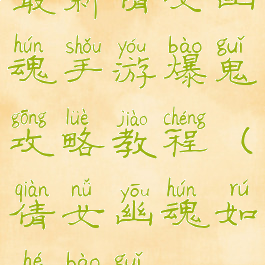 最新倩女幽
hún shǒu yóu bào guǐ
魂手游爆鬼
gōng lüè jiào chéng
攻略教程（
qiàn nǚ yōu hún rú
倩女幽魂如
hé bào guǐ